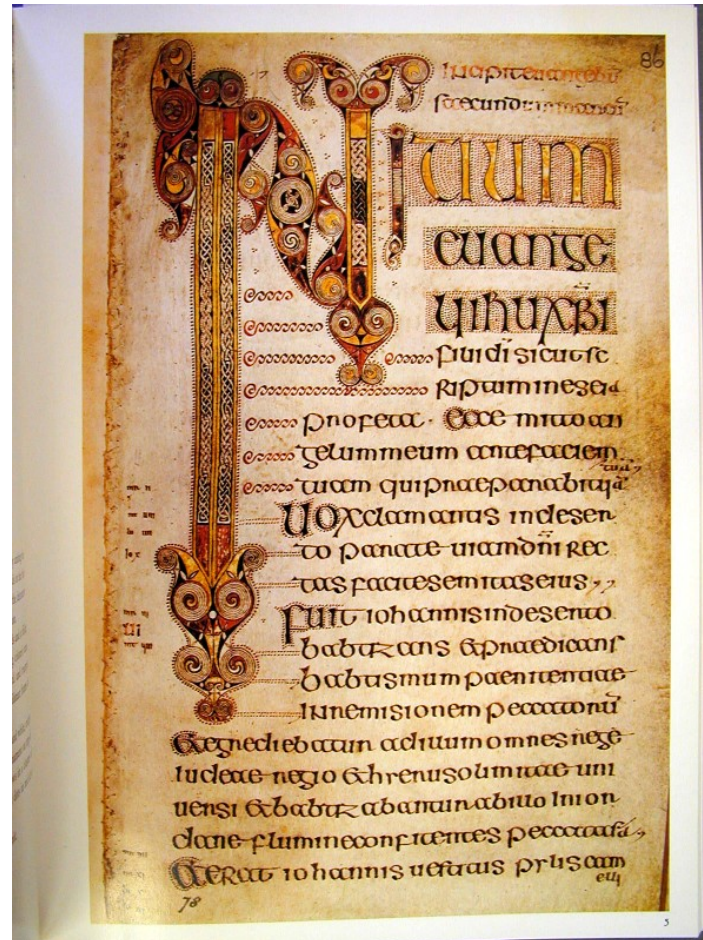 86
INITIUM
euange
lii ihu xpi
fili di sicut sc
riptum in esaia
profeta · Ecce mitto an
gelum meum ante faciem
tuam qui praeparabit uia
tuā
Uox clamantis in deser
to parate uiam dni rec
tas facite semitas eius
Fuit iohannis in deserto
babtizans & praedicans
babtismum paenitentiae
in remisionem peccatorū
& egrediebatur ad illum omnes
iudeae regio & hierusolimitae uni
uersi & babtizabantur ab illo in ior
dane flumine confitentes peccata
& erat iohannis uestitus pylis cam
elli
78
5